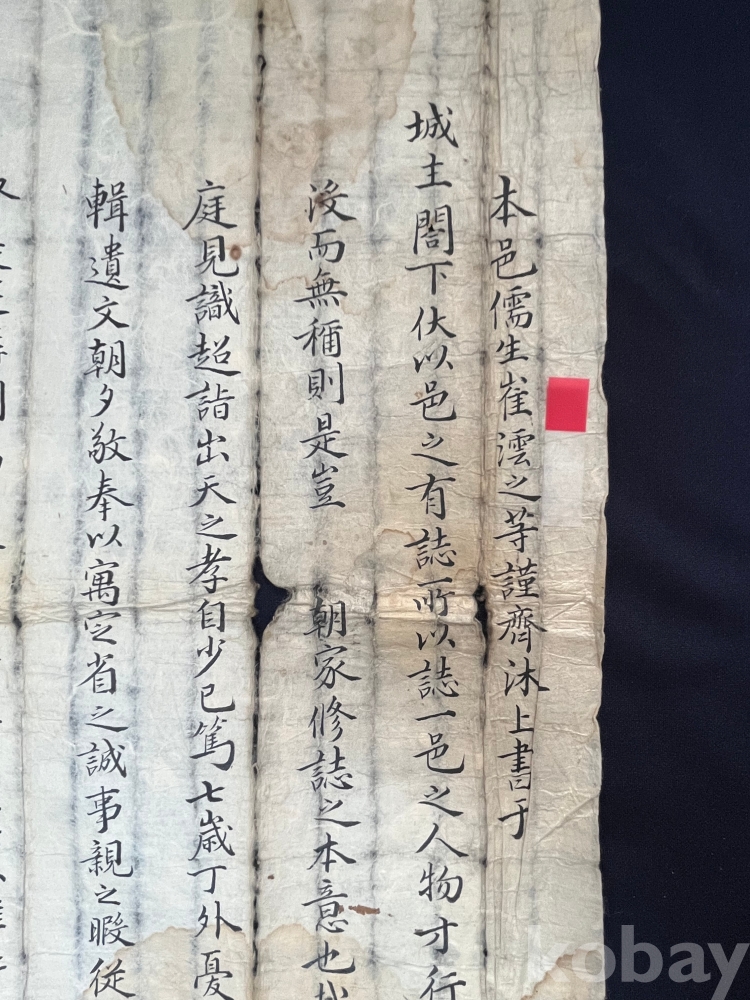 本邑儒生崔澐之等謹齊沐上書于
城主閤下伏以邑之有誌所以誌一邑之人物才行
沒而無稱則是豈 朝家修誌之本意也
庭見識超詣出天之孝自少已篤七歲丁外憂
輯遺文朝夕敬奉以寓定省之誠事親之暇從
kobay